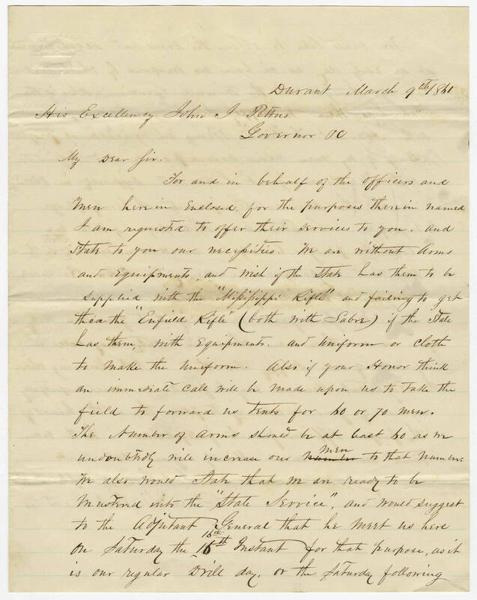 Durant March 9th/861
His Excellency John J Pettus
Governor &C
My Dear Sir.
For and in behalf of the officers and
Men herein Enclosed for the purposes therein named
I am requested to offer their services to you. and
State to you our necessities. We are without Arms
and equipments, and wish if the State has them to be
supplied with the "Mississippi Rifle" and failing to get
them the "Enfield Rifle" (both with Sabre) if the State
has them, with Equipments. and Uniform or cloth
to make the Uniform. Also if your Honor think
an immediate call will be made upon us to take the
field to forward us tents for 60 or 70 men.
The Number of Arms should be at least 60 as we
undoubtedly will increase our men to that number
We also would State that we are ready to be
Mustered into the "State Service", and would suggest
to the Adjutant General that he meet us here
On Saturday the 16th Instant for that purpose, as it
is our regular Drill day, or the Saturday following